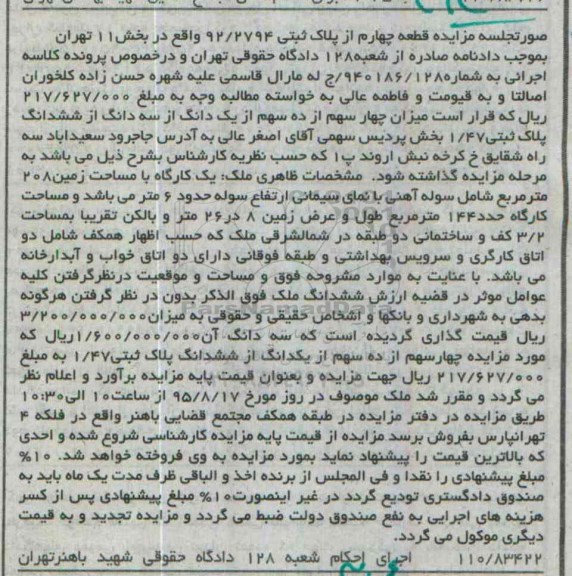 صورتجلسه مزایده قطعه چهارم از پلاک ثبتی ۹۲/۲۷۹۴ واقع در بخش۱۱ تهران
بموجب دادنامه صادره از شعبه۱۲۸ دادگاه حقوقی تهران و درخصوص پرونده کلاسه
اجرائی به شماره۹۴۰۱۸۶/۱۲۸/ج له مارال قاسمی علیه شهره حسن زاده کلخوران
اصالتا و به قیومت و فاطمه عالی به خواسته مطالبه وجه به مبلغ ۲۱۷/۶۲۷/۰۰۰
ریال که قرار است میزان چهار سهم از ده سهم از یک دانگ از سه دانگ از ششدانگ
پلاک ثبتی۱/۴۷ بخش پردیس سهمی آقای اصغر عالی به آدرس جاجرود سعیداباد سه
راه شقایق خ کرخه نبش اروند پ۱ که حسب نظریه کارشناس بشرح ذیل می باشد به
مرحله مزایده گذاشته شود. مشخصات ظاهری ملک: یک کارگاه با مساحت زمین۲۰۸
مترمربع شامل سوله آهنی با نمای سیمانی ارتفاع سوله حدود ۶ متر می باشد و مساحت
کارگاه حدد۱۴۴ مترمربع طول و عرض زمین ۸ در۲۶ متر و بالکن تقریبا بمساحت
۳/۲ کف و ساختمانی دو طبقه در شمالشرقی ملک که حسب اظهار همکف شامل دو
اتاق کارگری و سرویس بهداشتی و طبقه فوقانی دارای دو اتاق خواب و آبدارخانه
می باشد. با عنایت به موارد مشروحه فوق و مساحت و موقعیت درنظرگرفتن کلیه
عوامل موثر در قضیه ارزش ششدانگ ملک فوق الذکر بدون در نظر گرفتن هرگونه
بدهی به شهرداری و بانکها و اشخاص حقیقی و حقوقی به میزان۳/۲۰۰/۰۰۰/۰۰۰
ریال قیمت گذاری گردیده است که سه دانگ آن۱/۶۰۰/۰۰۰/۰۰۰ریال که
مورد مزایده چهارسهم از ده سهم از یکدانگ از ششدانگ پلاک ثبتی۱/۴۷ به مبلغ
۲۱۷/۶۲۷/۰۰۰ ریال جهت مزایده و بعنوان قیمت پایه مزایده برآورد و اعلام نظر
می گردد و مقرر شد ملک موصوف در روز مورخ ۹۵/۸/۱۷ از ساعت۱۰ الی۱۰:۳۰
طریق مزایده در دفتر مزایده در طبقه همکف مجتمع قضایی باهنر واقع در فلکه ۴
تهرانپارس بفروش برسد مزایده از قیمت پایه مزایده کارشناسی شروع شده و احدی
که بالاترین قیمت را پیشنهاد نماید بمورد مزایده به وی فروخته خواهد شد. ۱۰%
مبلغ پیشنهادی را نقدا و فی المجلس از برنده اخذ و الباقی ظرف مدت یک ماه باید به
صندوق دادگستری تودیع گردد در غیر اینصورت۱۰% مبلغ پیشنهادی پس از کسر
هزینه های اجرایی به نفع صندوق دولت ضبط می گردد و مزایده تجدید و به قیمت
دیگری موکول می گردد.
۱۱۰/۸۳۴۲۲ اجرای احکام شعبه ۱۲۸ دادگاه حقوقی شهید باهنرتهران